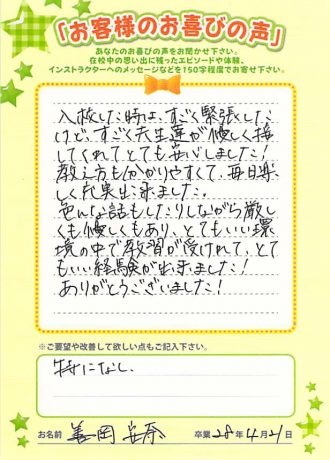 「お客様のお喜びの声」
あなたのお喜びの声をお聞かせ下さい。
在校中の思い出に残ったエピソードや体験、
インストラクターへのメッセージなどを150字程度でお寄せ下さい。
入校した時は、すごく緊張した
けど、すごく先生達が優しく接
してくれてとても安心しました！
教え方も分かりやすくて、毎日楽
しく充実出来ました。
色んな話もしたりしながら厳し
くも優しくもあり、とてもいい環
境の中で教習が受けれて、とて
もいい経験が出来ました！
ありがとうございました！
※ご要望や改善して欲しい点もご記入下さい。
特になし
お名前 岡 安奈 卒業 28年4月21日